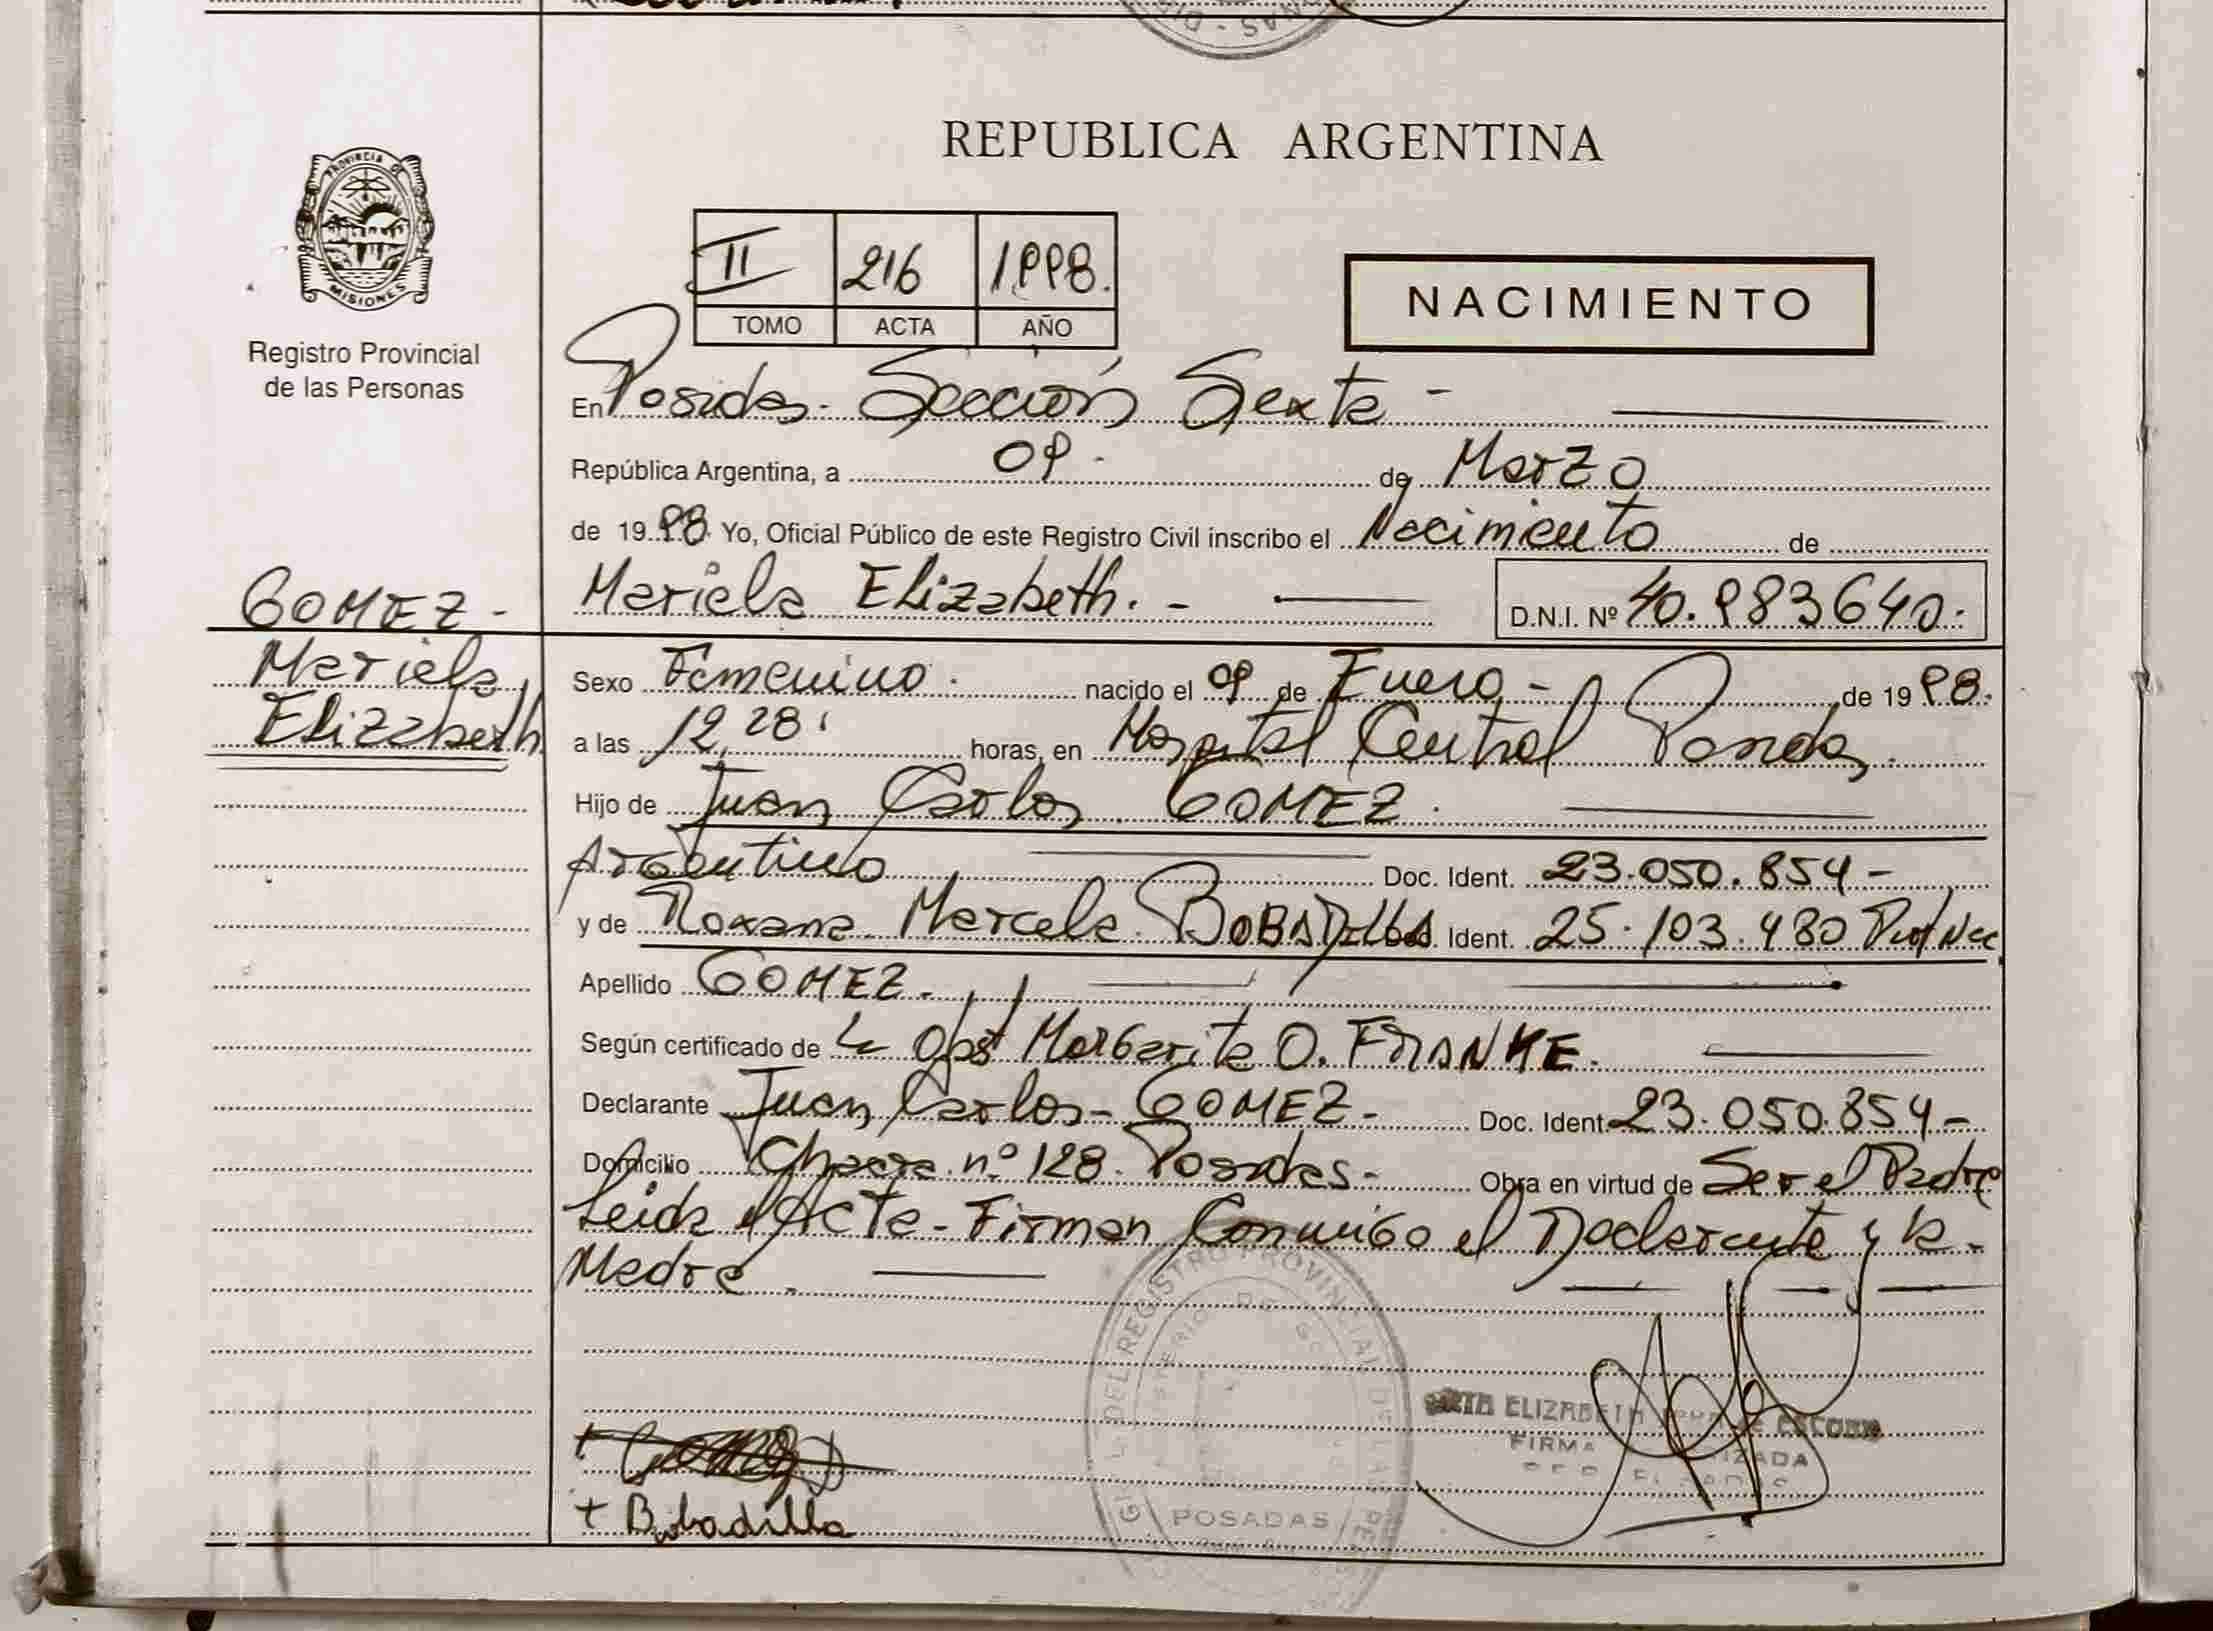 REPUBLICA ARGENTINA
PROVINCIA DE
MISIONES
Registro Provincial
de las Personas
II 216 1998.
TOMO ACTA AÑO
NACIMIENTO
En Posadas. Sección Sexta -
República Argentina, a 09. de Marzo
de 1998. Yo, Oficial Público de este Registro Civil inscribo el Nacimiento de
Mariela Elizabeth. - D.N.I. Nº 40.983640.
GOMEZ -
Mariela
Elizabeth
Sexo Femenino. nacido el 09 de Enero - de 1998.
a las 12,28' horas, en Hospital Central Posadas.
Hijo de Juan Carlos GOMEZ.
Argentino Doc. Ident. 23.050.854 -
y de Roxana Marcela BOBADILLA Doc. Ident. 25.103.480
Apellido GOMEZ.
Según certificado de la Obst Margarita O. FRANKE.
Declarante Juan Carlos - GOMEZ - Doc. Ident. 23.050.854 -
Domicilio Chacra nº 128. Posadas - Obra en virtud de Ser el Padre
Leida el Acta - Firman Conmigo el Declarante y la -
Madre.
DEL REGISTRO PROVINCIAL DE LAS
POSADAS
ELIZABETH
FIRMA
+ Bobadilla